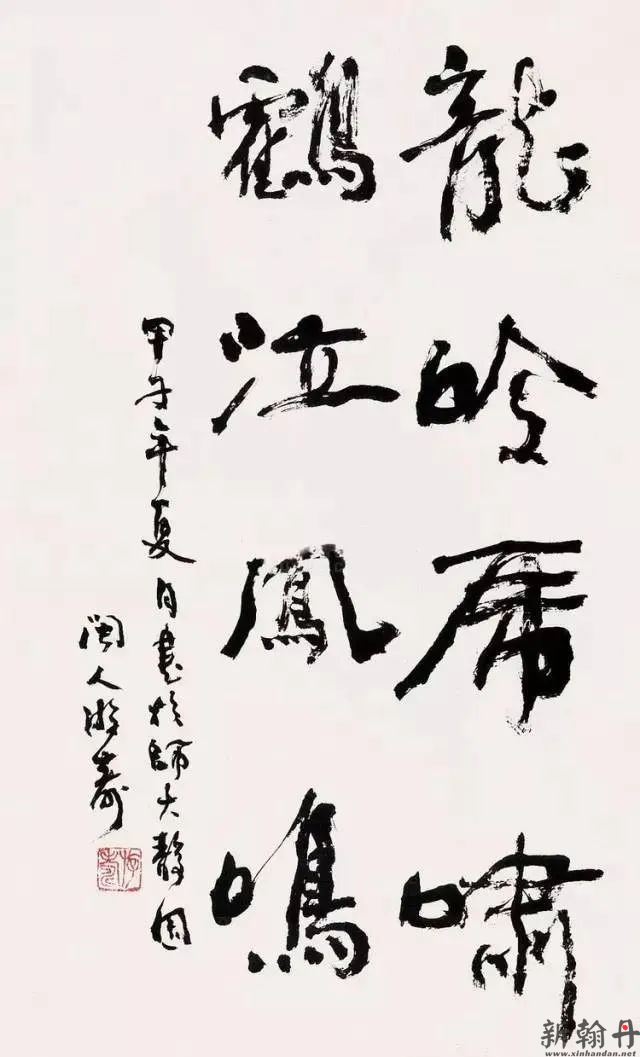 龍吟虎嘯
鶴泣鳳鳴
甲子年夏日書於師大靜園
閩人游壽
游壽
新翰丹
www.xinhandan.net